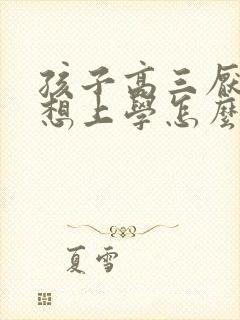 孩子高三厭
想上學怎麼
夏雪